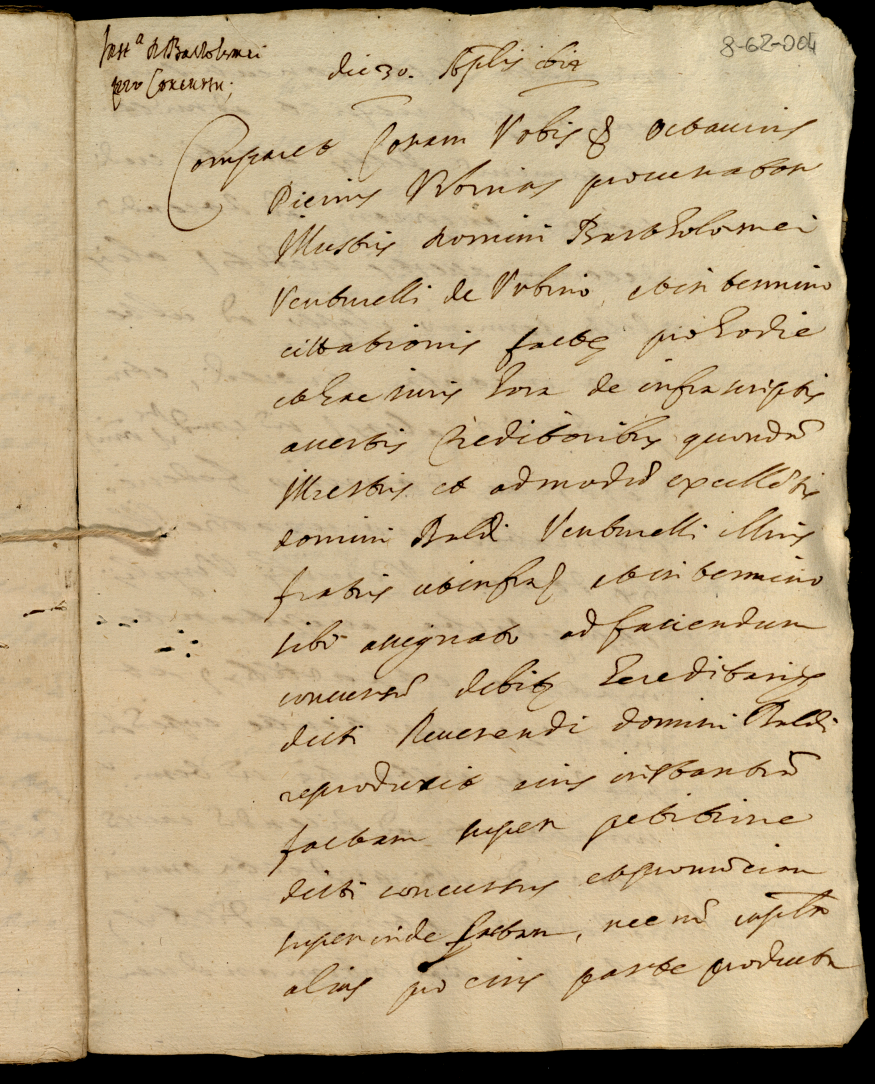 8-62-004
Inst.a D. Bartolomei
pro Concursu;
die 30. 7bris
Comparet Coram Vobis & Octavius
Pierius Urbinas procurator
Illustris domini Bartholomei
Venturelli de Urbino, et in termino
cittationis factę pro hodie
et hac iuris hora de infrascriptis
Creditoribus quondā
Illustris et admodū excellētis
domini Baldi Venturelli illius
fratris ut infra et in termino
sibi assignato ad faciendum
concursū debitę hereditarię
dicti Reverendi domini Baldi
reproduxit eius instantiā
factam super petitione
dicti concursus
super inde factam, nec nō
alias pro eius parte producta